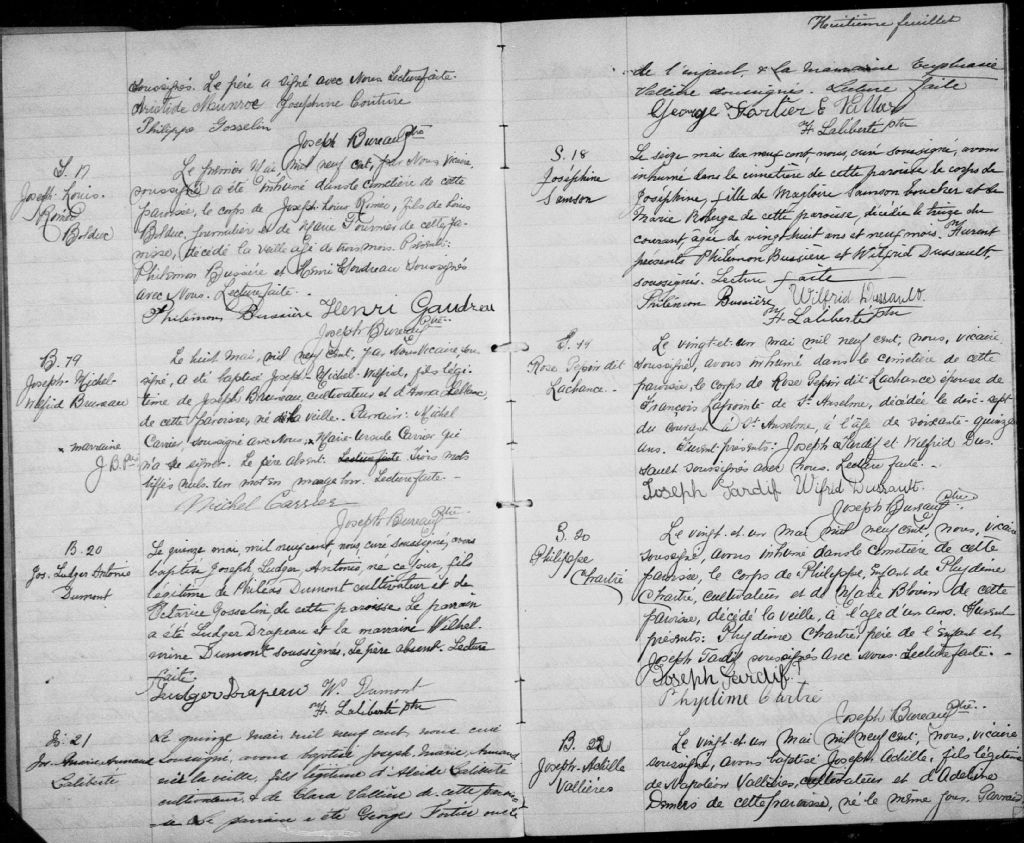 soussignés. Le père a signé avec Nous. Lecture faite.
Aristide Munroe Josephine Couture
Philippe Gosselin
Joseph Bureau Ptre
S. 17
Joseph-Louis-
Roméo
Bolduc
Le premier Mai, mil neuf cent, par Nous Vicaire,
soussigné a été inhumé dans le cimetière de cette
paroisse, le corps de Joseph Louis Roméo, fils de Louis
Bolduc, journalier et de Marie Fournier de cette pa-
roisse, décédé la veille agé de trois mois. Présents:
Philémon Bussière et Henri Gaudreau Soussignés
avec Nous. Lecture faite.
Philémon Bussière Henri Gaudreau
Joseph Bureau Ptre
B. 19
Joseph-Michel-
Wilfrid Bureau
marraine
J. B. Ptre
Le huit Mai, mil neuf cent, par Nous Vicaire, sous-
signé, a été baptisé Joseph-Michel-Wilfrid, fils légi-
time de Joseph Bureau, cultivateur et d'Anna Leblanc
de cette Paroisse, né la veille. Parrain: Michel
Carrier, soussigné avec Nous; Marie-Ursule Carrier qui
n'a su signer. Le père absent. Lecture faite Trois mots
biffés nuls. Un mot en marge bon. Lecture faite.
Michel Carrier
Joseph Bureau Ptre
B. 20
Jos. Ludger Antonio
Dumont
Le quinze mai, mil neuf cent, nous, curé soussigné, avons
baptisé Joseph, Ludger, Antonio, né ce jour, fils
légitime de Philéas Dumont cultivateur et de
Octavie Gosselin, de cette paroisse. Le parrain
a été Ludger Drapeau et la marraine Wilhel-
mine Dumont soussignés. Le père absent. Lecture
faite.
Ludger Drapeau W. Dumont
H. Laliberté ptre
B. 21
Jos. Marie, Armand
Laliberté
Le quinze mai mil neuf cent nous curé
soussigné, avons baptisé Joseph, Marie, Armand
né la veille, fils légitime d'Alcide Laliberté
cultivateur, & de Clara Vallière de cette parois-
se. Le parrain a été George Fortier oncle
Huitième feuillet
de l'enfant, & la marraine Euphrasie
Vallière soussignés. Lecture faite
George Fortier E Vallier
H. Laliberté ptre
S. 18
Joséphine
Samson
Le seize mai dix neuf cent, nous, curé soussigné, avons
inhumé dans le cimetière de cette paroisse le corps de
Joséphine, fille de Magloire Samson boucher et de
Marie Roberge de cette paroisse, décédée le treize du
courant, âgée de vingt huit ans et neuf mois. Furent
présents Philémon Bussière et Wilfrid Dussault,
soussignés. Lecture faite
Philémon Bussière Wilfrid Dussault.
H. Laliberté ptre
S. 19
Rose Pepin dit
Lachance.
Le vingt-et-un mai mil neuf cent, nous, vicaire,
soussigné, avons inhumé dans le cimetière de cette
paroisse, le corps de Rose Pepin dit Lachance épouse de
François Lapointe de St. Anselme, décédée le dix-sept
du courant à St. Anselme, à l'âge de soixante-quinze
ans. Furent présents: Joseph Tardif et Wilfrid Dus-
sault soussignés avec nous. Lecture faite.
Joseph Tardif Wilfrid Dussault.
Joseph Bureau Ptre
S. 20
Philippe
Chartré
Le vingt-et-un Mai mil neuf cent, nous, vicaire
soussigné, avons inhumé dans le cimetière de cette
paroisse, le corps de Philippe, enfant de Phydime
Chartré, cultivateur et de Marie Blouin de cette
paroisse, décédé la veille, à l'âge d'un ans. Furent
présents: Phydime Chartré, père de l'enfant et
Joseph Tardif soussignés avec nous. Lecture faite.
Joseph Tardif
Phyptime Cartré
Joseph Bureau Ptre
B. 22
Joseph-Adille
Vallières
Le vingt-et-un Mai mil neuf cent, nous, vicaire
soussigné, avons baptisé Joseph, Adille, fils légitime
de Napoléon Vallières, cultivateur et d'Adeline
Demers de cette paroisse, né le même jour. Parrain